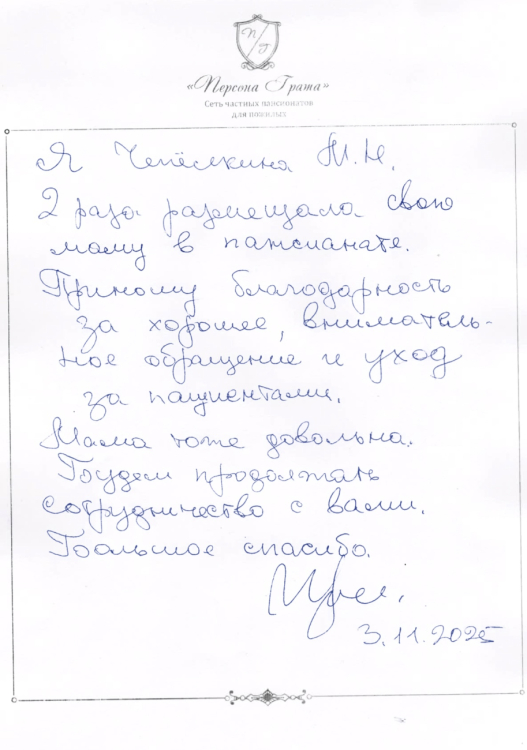 «Персона Грата»
Сеть частных пансионатов
для пожилых
Я Чепёлкина М.Н.
2 раза размещала свою
маму в пансианате.
Приношу благодарность
за хорошее, вниматель-
ное обращение и уход
за пациентами.
Мама тоже довольна.
Будем продолжать
сотрудничество с вами.
Большое спасибо.
3.11.2025